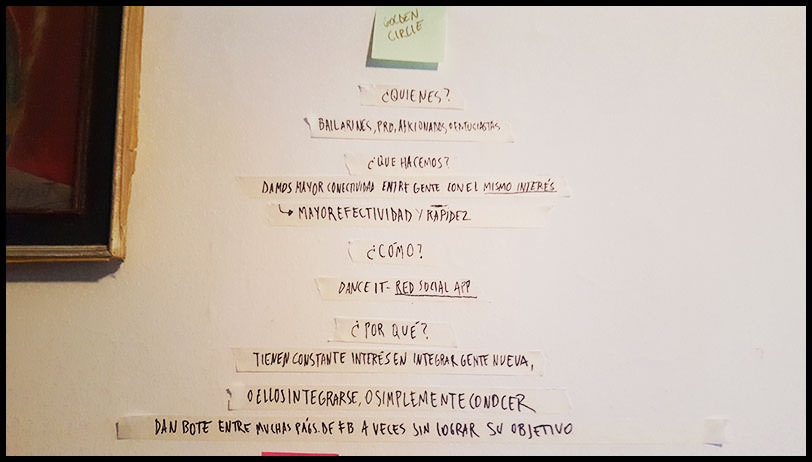 GOLDEN
CIRLIE
¿QUIENES?
BAILARINES, PRO, AFICIONADOS, O ENTUCIASTAS
¿QUE HACEMOS?
DAMOS MAYOR CONECTIVIDAD ENTRE GENTE CON EL MISMO INTERÉS.
↳ MAYOR EFECTIVIDAD Y RAPIDEZ
¿CÓMO?
DANCE IT - RED SOCIAL APP
¿POR QUÉ?
TIENEN CONSTANTE INTERÉS EN INTEGRAR GENTE NUEVA,
O ELLOS INTEGRARSE, O SIMPLEMENTE CONOCER
DAN BOTE ENTRE MUCHAS PÁGS. DE FB A VECES SIN LOGRAR SU OBJETIVO